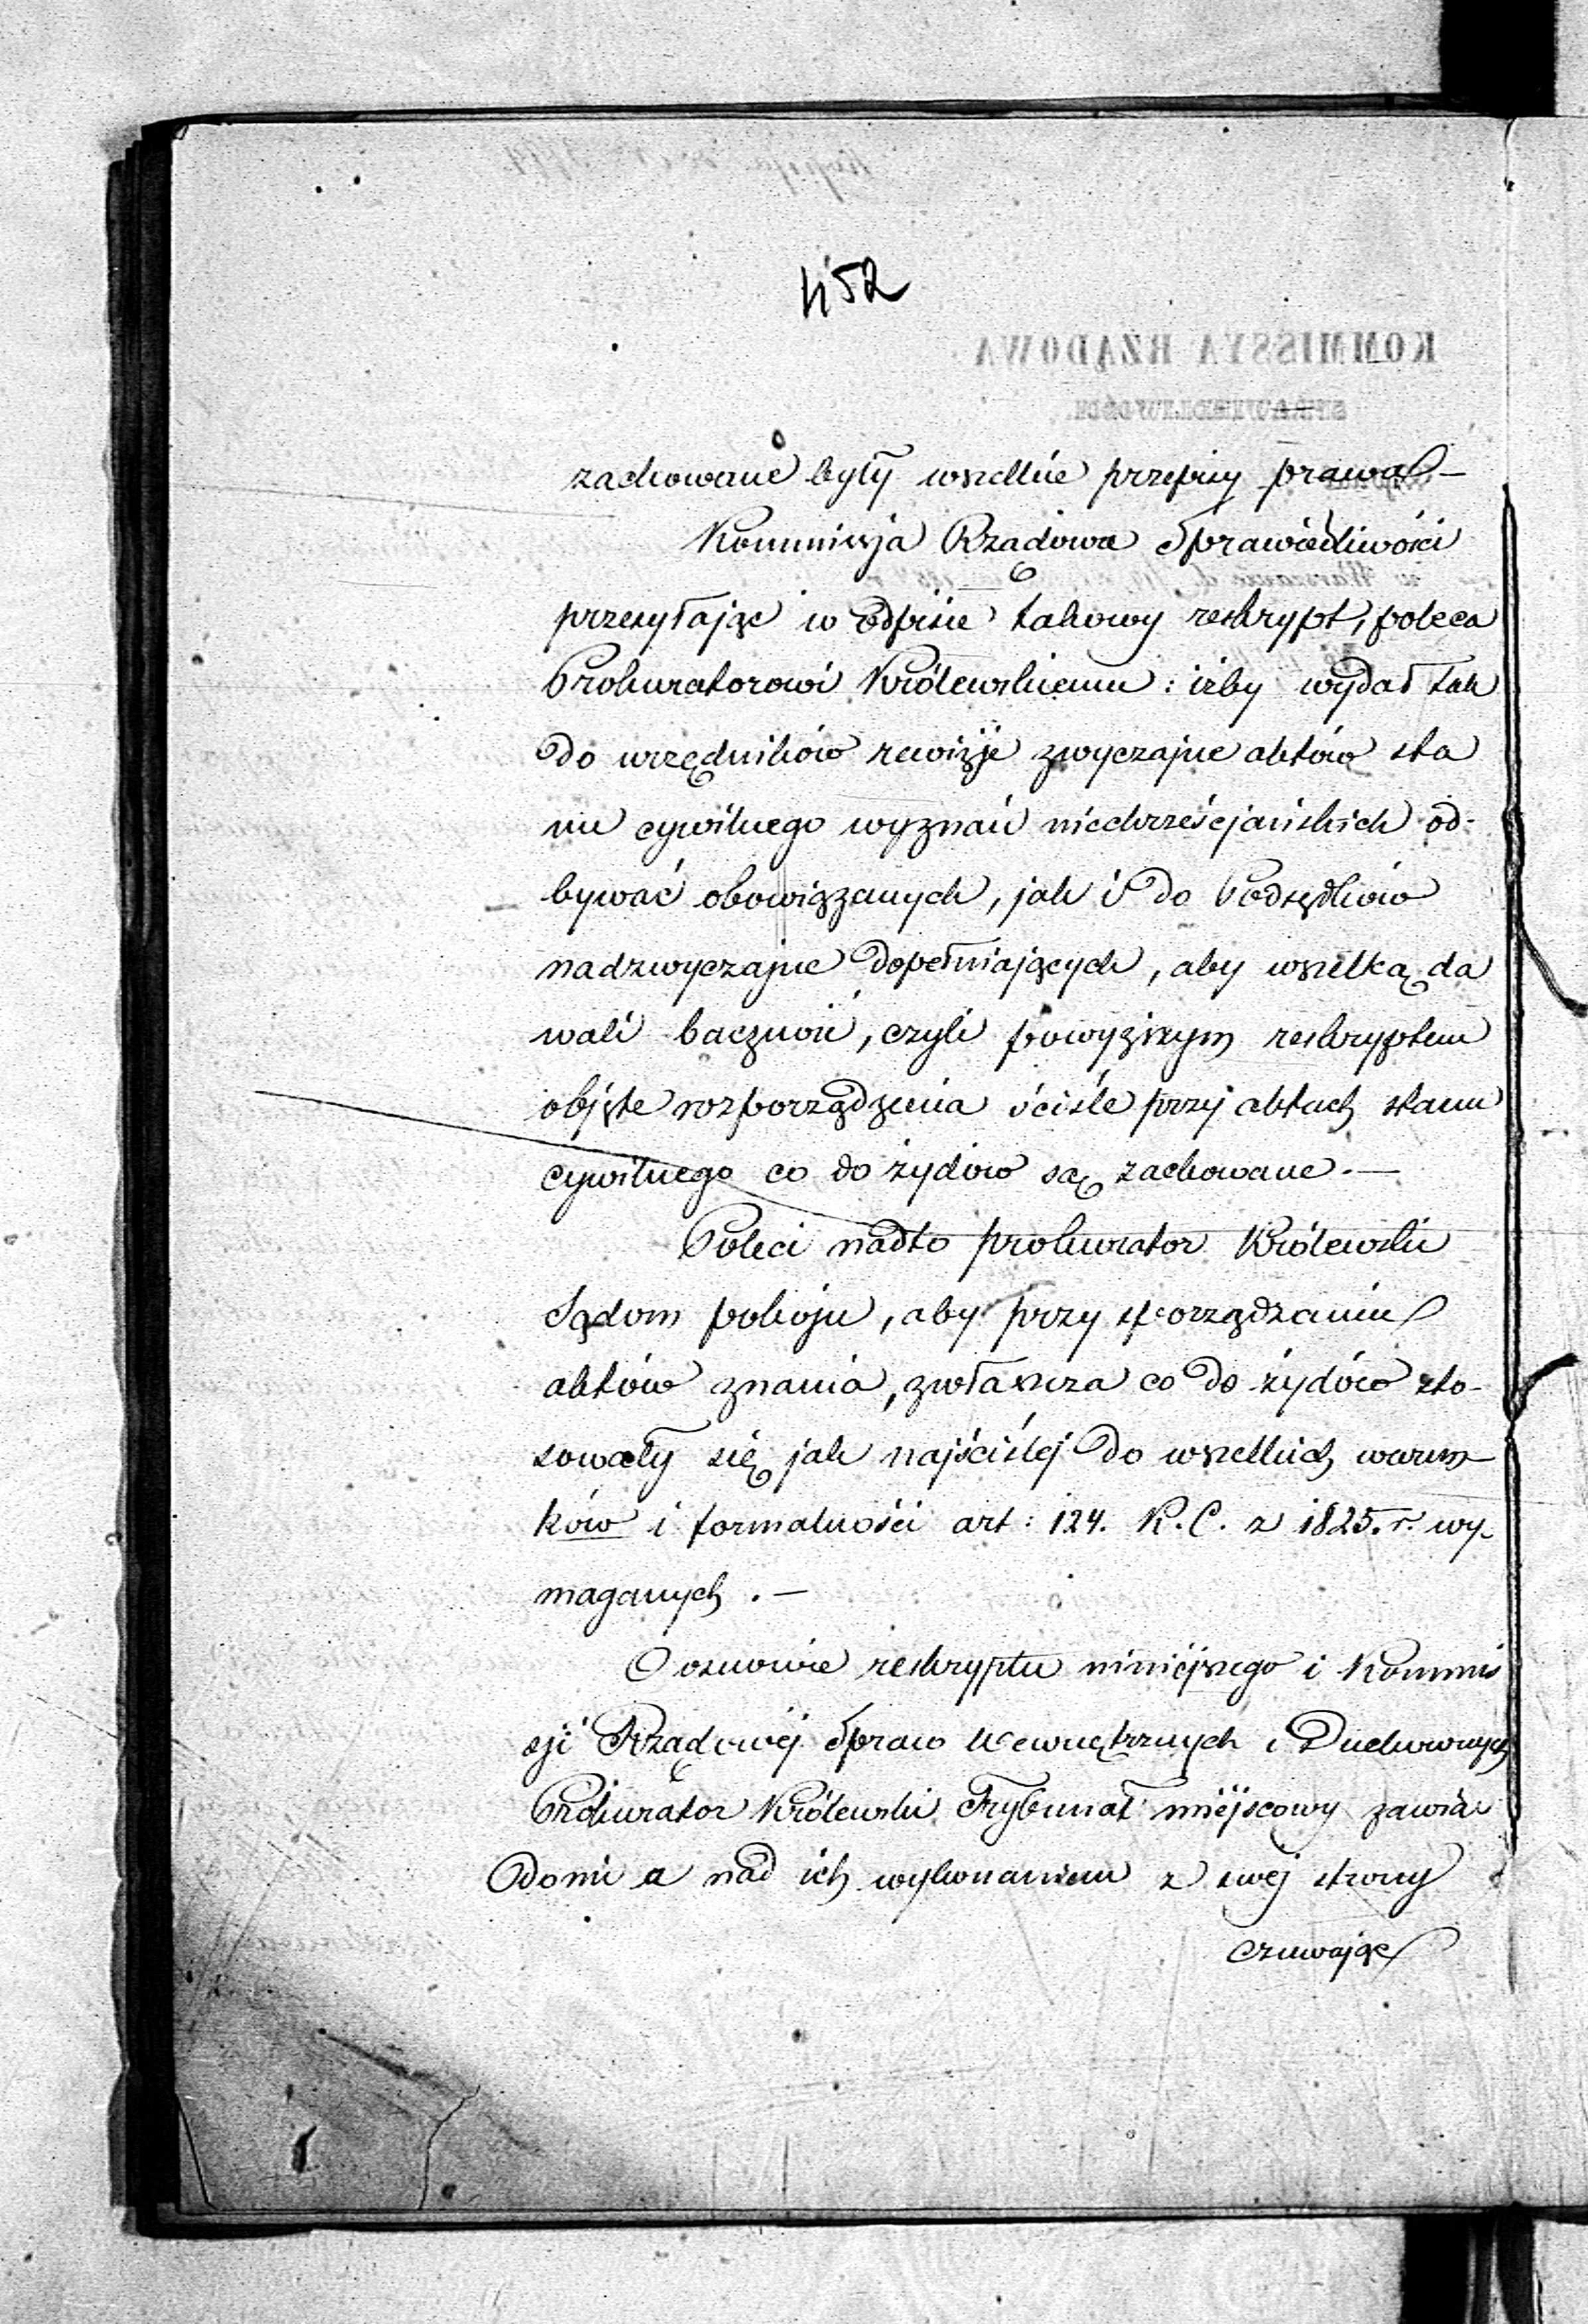 452
KOMMISSYA RZĄDOWA
SPRAWIEDLIWOŚCI
zachowane były wszelkie przepisy prawa —
Kommisja Rządowa Sprawiedliwości
przesyłając w odpisie takowy reskrypt, poleca
Prokuratorowi Królewskiemu: iżby wydał tak
do urzędników rewizje zwyczajne aktów sta
nu cywilnego wyznań niechrześcjańskich od-
bywać obowiązanych, jak i do Podsędków
nadzwyczajne dopełniających, aby wszelką da
wali baczność, czyli powyższym reskryptem
objęte rozporządzenia ściśle przy aktach stanu
cywilnego co do żydów są zachowane. —
Poleci nadto prokurator Królewski
Sądom pokoju, aby przy sporządzaniu
aktów znania, zwłaszcza co do żydów sto-
sowały się jak najściślej do wszelkich warun-
ków i formalności art: 124. K. C. z 1825. r. wy-
maganych. —
O osnowie reskryptu niniejszego i Kommis
sji Rządowej Spraw Wewnętrznych i Duchownych
Prokurator Królewski Trybunał miejscowy zawia-
domi a nad ich wykonaniem z swej strony
czuwając